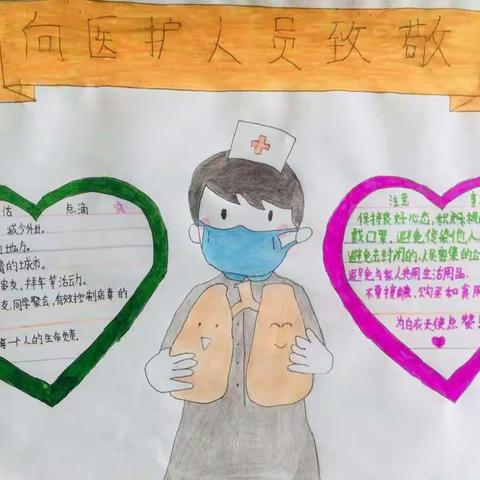 向医护人员致敬
活 点滴
减少外出。
的地方。
情的城市。
串友，拜年等活动。
友，同学聚会，有效控制病毒的
每一个人的生命负责。
注意
保持良好心态，积极
戴口罩，避免传染他人
避免去封闭的，人员密集的公
避免与家人共用生活用品。
不要接触、购买和食用
为白衣天使点赞